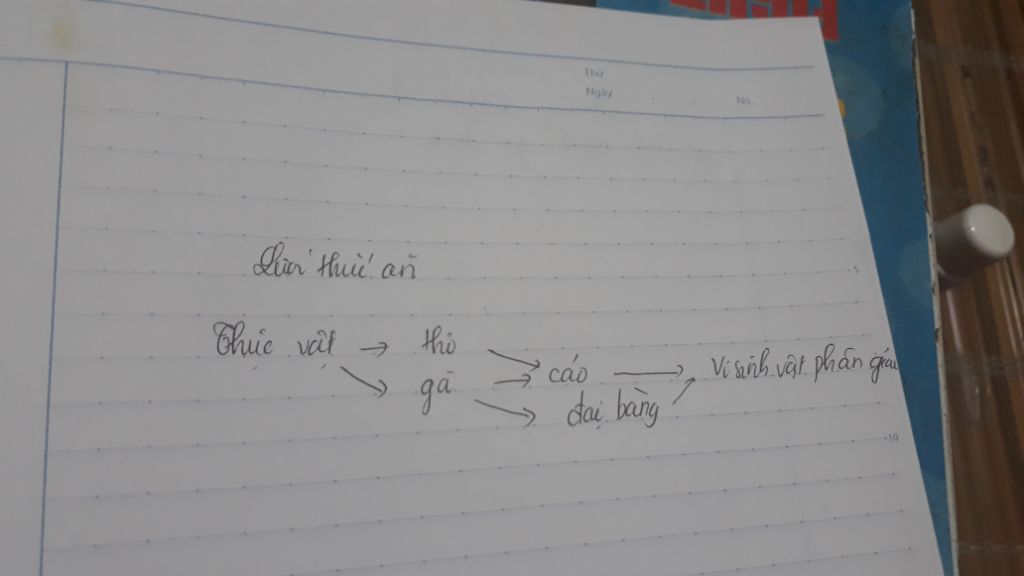 Thứ
Ngày . . No.
Lưới thức ăn
5
Thực vật → thỏ
gà → cáo → Vi sinh vật phân giải
đại bàng
10